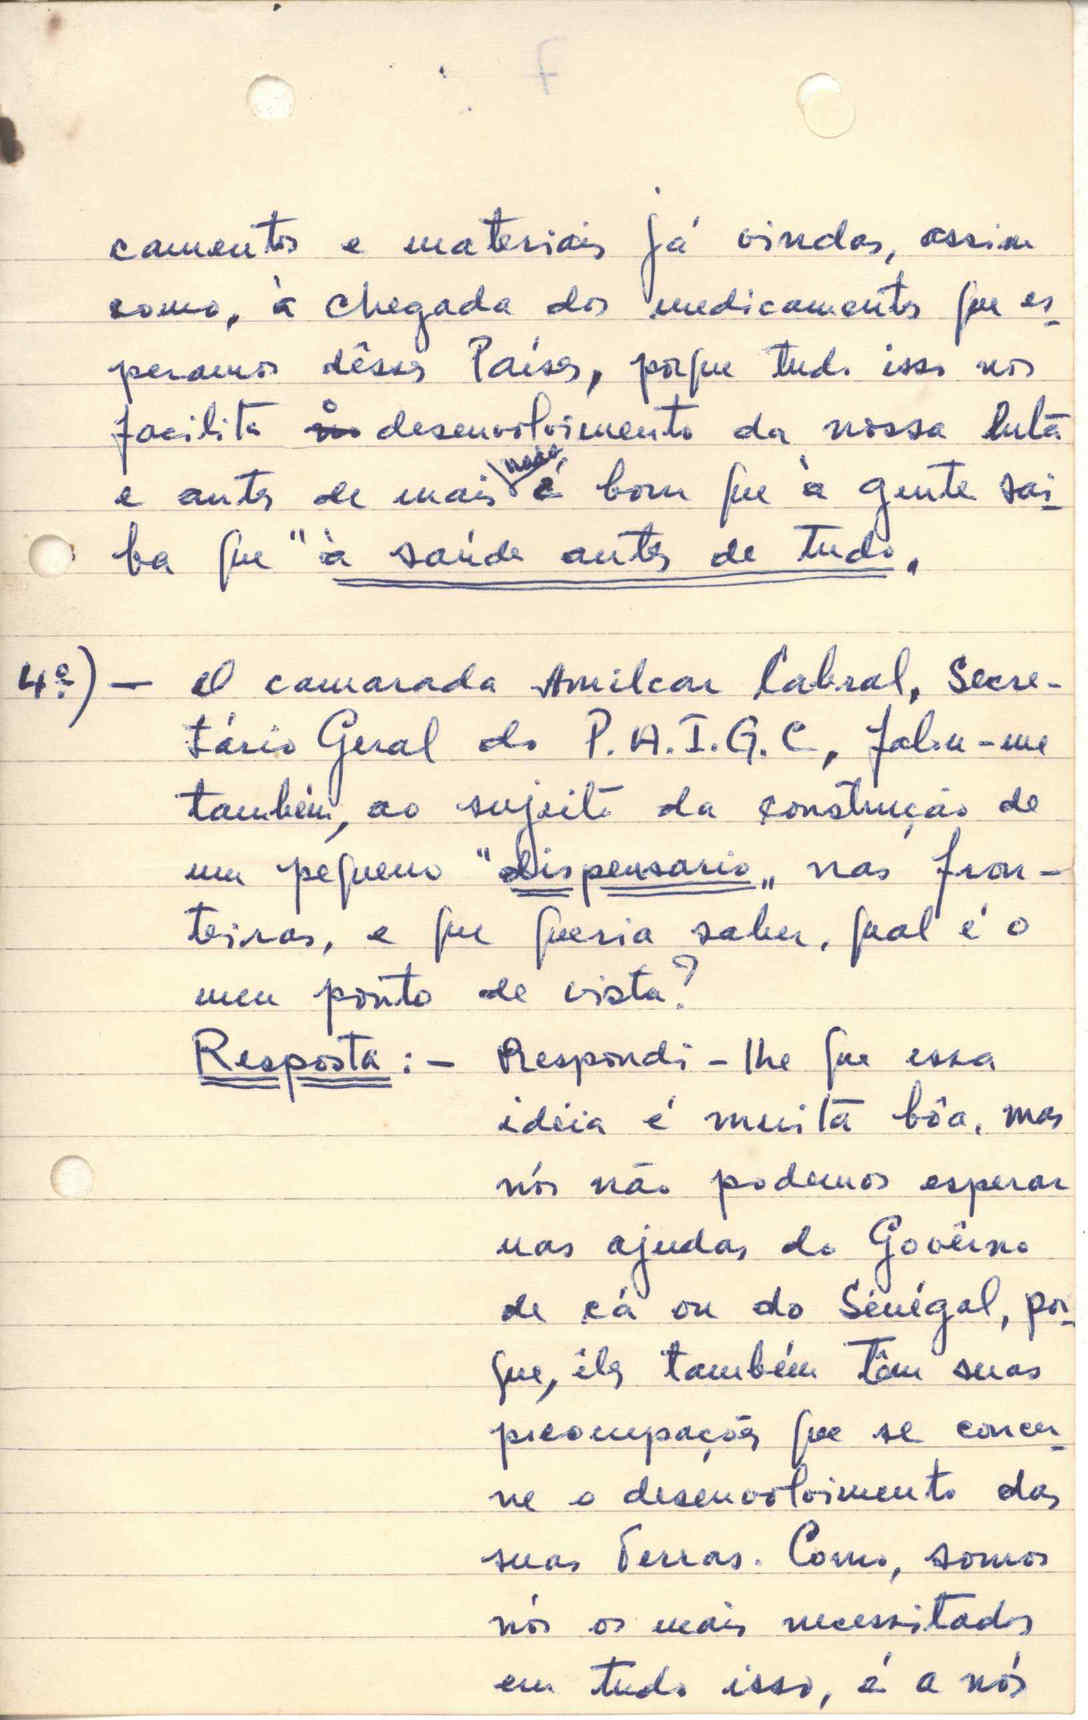 7
camentos e materiais já vindos, assim
como, à chegada dos medicamentos que es-
peramos dêsses Países, porque tudo isso nos
facilita o desenvolvimento da nossa luta
e antes de mais nada é bom que à gente sai-
ba que "à saúde antes de tudo.
4º) - O camarada Amilcar Cabral, Secre-
tário Geral do P.A.I.G.C, falou-me
também, ao sujeito da construção de
um pequeno "dispensario" nas fron-
teiras, e que queria saber, qual é o
meu ponto de vista?
Resposta:- Respondi-lhe que essa
idéia é muita bôa, mas
nós não podemos esperar
nas ajudas do Govêrno
de cá ou do Sénégal, por-
que, êles também têm suas
preocupações que se concer-
ne o desenvolvimento das
suas Terras. Como, somos
nós os mais necessitados
em tudo isso, é a nós